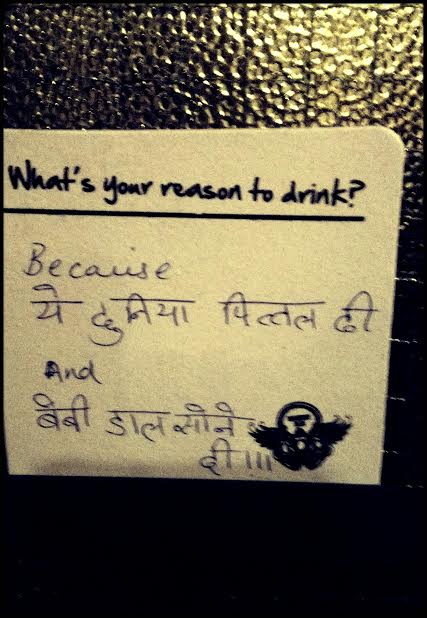 What's your reason to drink?
Because
ये दुनिया पित्तल दी
And
बेबी डाल सोने
दी !!!